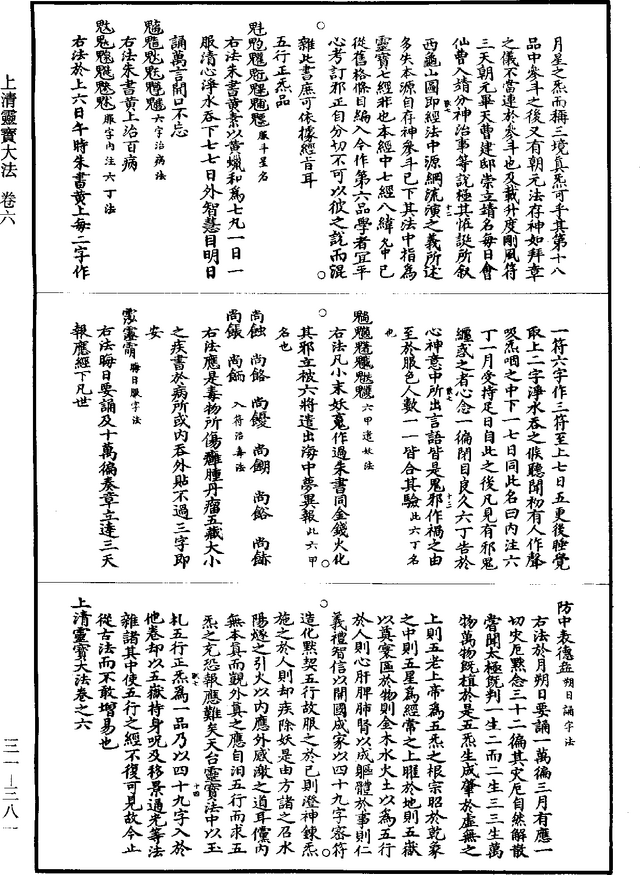 上清靈寶大法 卷六
三一—三八一
月星之炁而稱三境真炁可乎其第十八
品中參斗之後又有朝元法存神如拜章
之儀不當連於參斗也及載升度剛風符
三天朝元畢天曹建邸崇立靖名每日會
仙曹入靖分神治事等說極其恠誕所叙
西龜山圖即經法中源綱流演之義所述
多失本源自存神參斗已下其法中指為
靈寶七經非也本經中七經八緯
從舊格條目編入今作第六品學者宜平
心考訂邪正自分切不可以彼之說而混
雜此書庶可依據經旨耳
五行正炁品
服斗星名
右法朱書黃素以黃蠟和為七丸一日一
服清心淨水吞下七七日外智慧目明日
誦萬言開口不忘
六字治病法
右法朱書黃上治百病
服字內注六丁法
右法於上六日午時朱書黃上每二字作
一符六字作三符至上七日五更後睡覺
取上二字淨水吞之候聽聞初有人作聲
吸炁咽之中下一七日同此名曰內注六
丁一月受持足日自此之後凡見有邪鬼
纏惑之者心念一徧閉目良久六丁告於
心神意中所出言語皆是鬼邪作禍之由
至於服色人數一一皆合其驗此六丁名
也
六甲遣妖法
右法凡小末妖䰟作過朱書同金錢火化
其邪立被六將遣出海中夢異報此六甲
名也
入符治毒法
右法應是毒物所傷癰腫丹瘤五藏大小
之疾書於病所或內吞外貼不過三字即
安
晦日服字法
右法晦日要誦及十萬徧奏章立達三天
報應經下凡世
防中表德
朔日誦字法
右法於月朔日要誦一萬徧三月有應一
切災厄黙念三十二徧其災厄自然解散
嘗聞太極旣判一生二而二生三三生萬
物萬物旣植於是五炁生成肇於虛無之
上則五老上帝為五炁之根宗昭於乾象
之中則五星為經常之上曜於地則五嶽
以奠寰區於物則金木水火土以為五行
於人則心肝脾肺腎以成軀體於事則仁
義禮智信以開國成家以四十九字密符
造化黙契五行故服之於己則澄神鍊炁
施之於人則却疾除妖是由方諸之召水
陽燧之引火以內應外感激之道耳儻內
無本真而觀外真之應自汨五行而求五
炁之充恐報應難矣天台靈寶法中以玉
札五行正炁為一品乃以四十九字入於
他卷却以五嶽持身呪及移景通光等法
雜諸其中使五行之經不復可見故今止
從古法而不敢增易也
上清靈寶大法卷之六